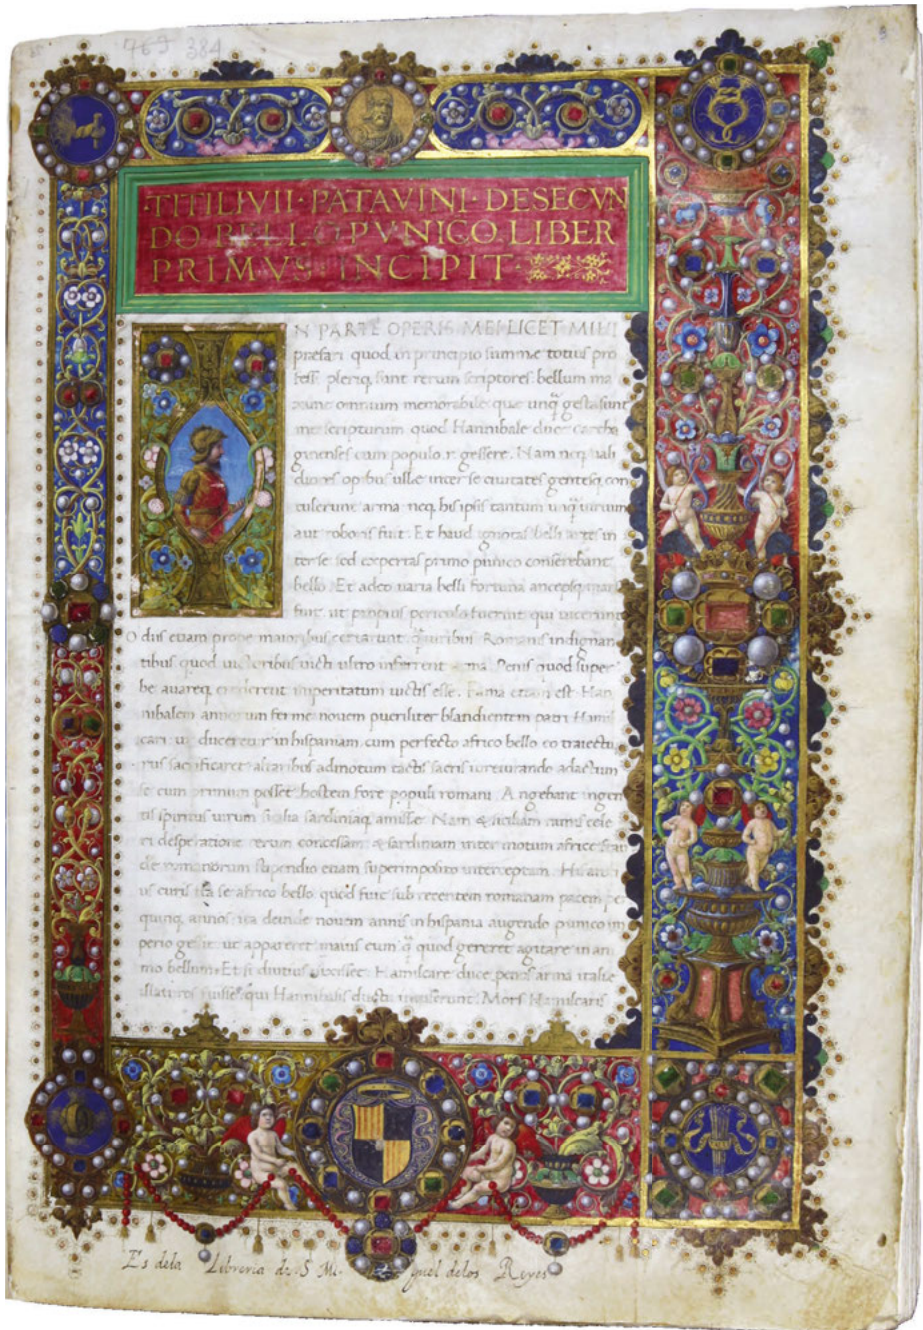 769 384
TITI LIVII · PATAVINI · DE SECVN
DO BELLO PVNICO LIBER
PRIMVS INCIPIT
N PARTE OPERIS MEI LICET MIHI
præfari quod in principio summe totius pro
fessi pleriq; sunt rerum scriptores bellum ma
xime omnium memorabile que unq̃ gesta sint
me scripturum quod Hannibale duce cartha
ginenses cum populo .r. gessere. Nam neq; uali
diores opibus ulle inter se ciuitates gentesq; con
tulerunt arma neq; his ipsis tantum unq̃ uirium
aut roboris fuit. Et haud ignotas belli artes in
ter se sed expertas primo punico conserebant
bello. Et adeo uaria belli fortuna ancepsq;
fuit ut propius periculo fuerint qui uicerunt
O diis etiam prope maioribus certarunt q̃ uiribus Romanis indignan
tibus quod uictoribus uicti ultro inferrent arma. Penis quod super
be auareq; crederent imperitatum uictis esse. Fama etiam est Han
nibalem annorum ferme nouem pueriliter blandientem patri Hamil
cari ut duceretur in hispaniam cum perfecto africo bello eo traiectu
rus sacrificaret altaribus admotum tactis sacris iureiurando adactum
se cum primum posset hostem fore populi romani. Angebant ingen
tis spiritus uirum sicilia sardiniaq; amisse. Nam & siciliam nimis cele
ri desperatione rerum concessam & sardiniam inter motum africe frau
de romanorum stipendio etiam superimposito interceptam. His anxi
us curis ita se africo bello quod fuit sub recentem romanam pacem per
quinq; annos ita deinde nouem annis in hispania augendo punico im
perio gessit ut appareret maius eum q̃ quod gereret agitare in an
mo bellum. Et si diutius uixisset Hamilcare duce penos arma italie
illaturos fuisse qui Hannibalis ductu intulerunt. Mors Hamilcaris
Es dela Libreria de S Mi guel delos Reyes